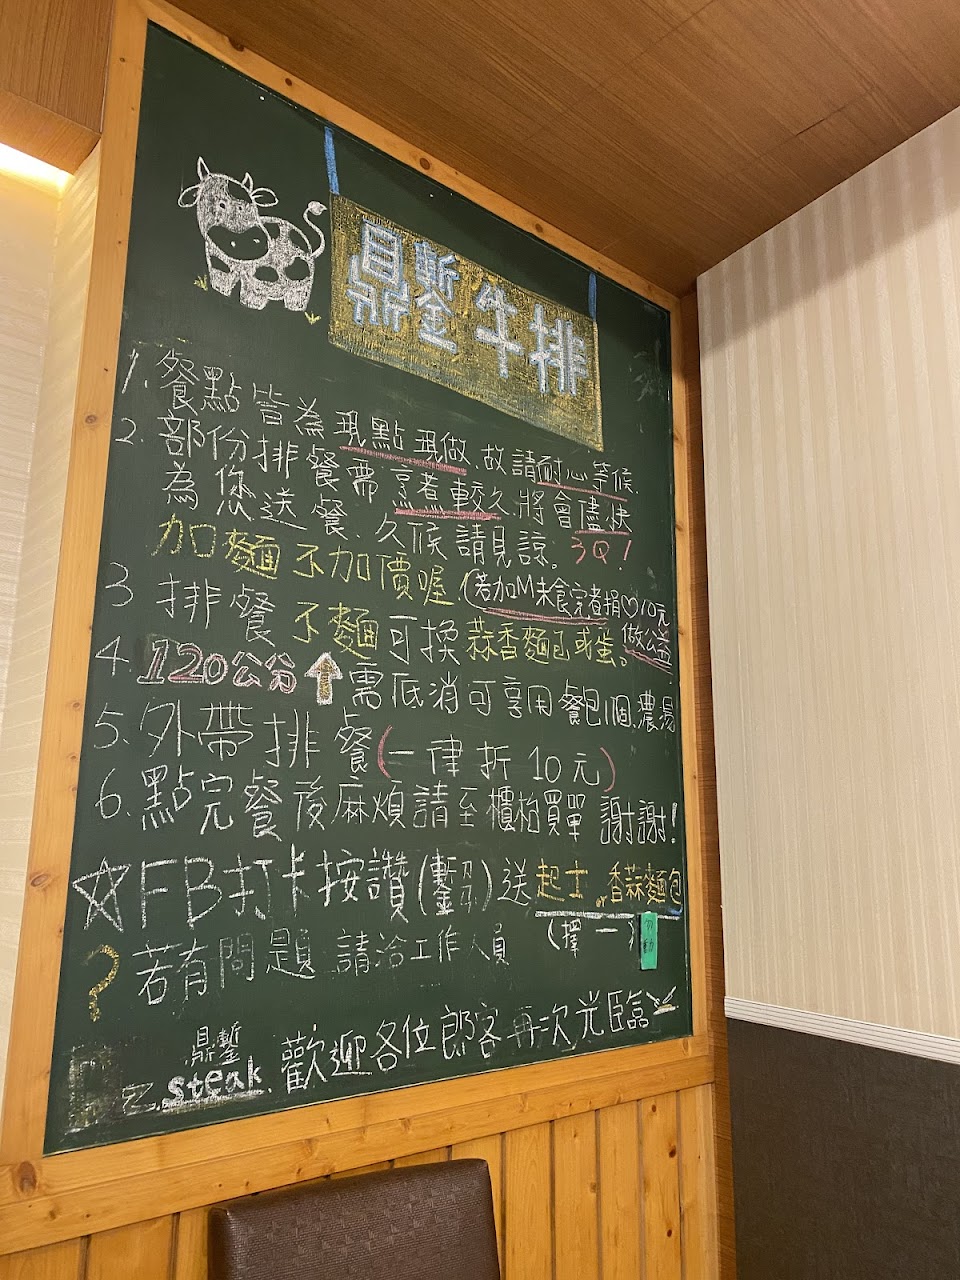 鼎鏨牛排
1. 餐點皆為現點現做、故請耐心等候、
2. 部份排餐需烹煮較久、將會儘快
為您送餐、久候請見諒。3Q!
加麵不加價喔(若加M未食完者捐♡10元
做公益
3 排餐不麵可換蒜香麵包或蛋。
4. 120公分↑需低消可享用餐包1個、濃湯
5. 外帶排餐(一律折10元)
6. 點完餐後麻煩請至櫃枱買單 謝謝!
☆FB打卡按讚(鏨)送起士or香蒜麵包
(擇一)
? 若有問題 請洽工作人員
鼎鏨
steak
歡迎各位郎客再次光臨